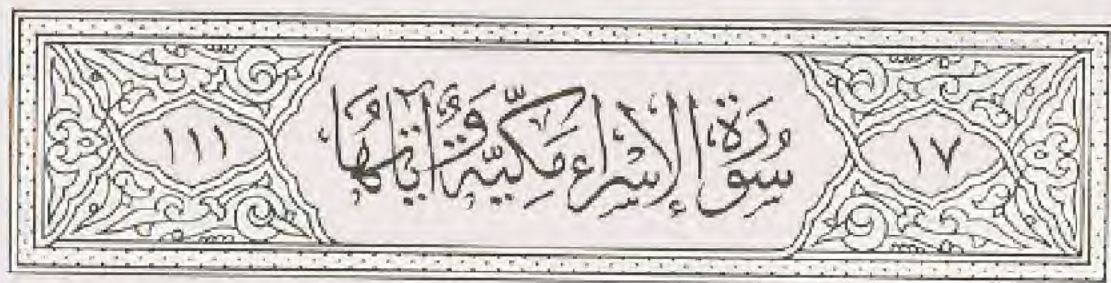 ١٧ سُورَةُ الإِسْرَاءِ مَكِّيَّة وَآيَاتُهَا ١١١